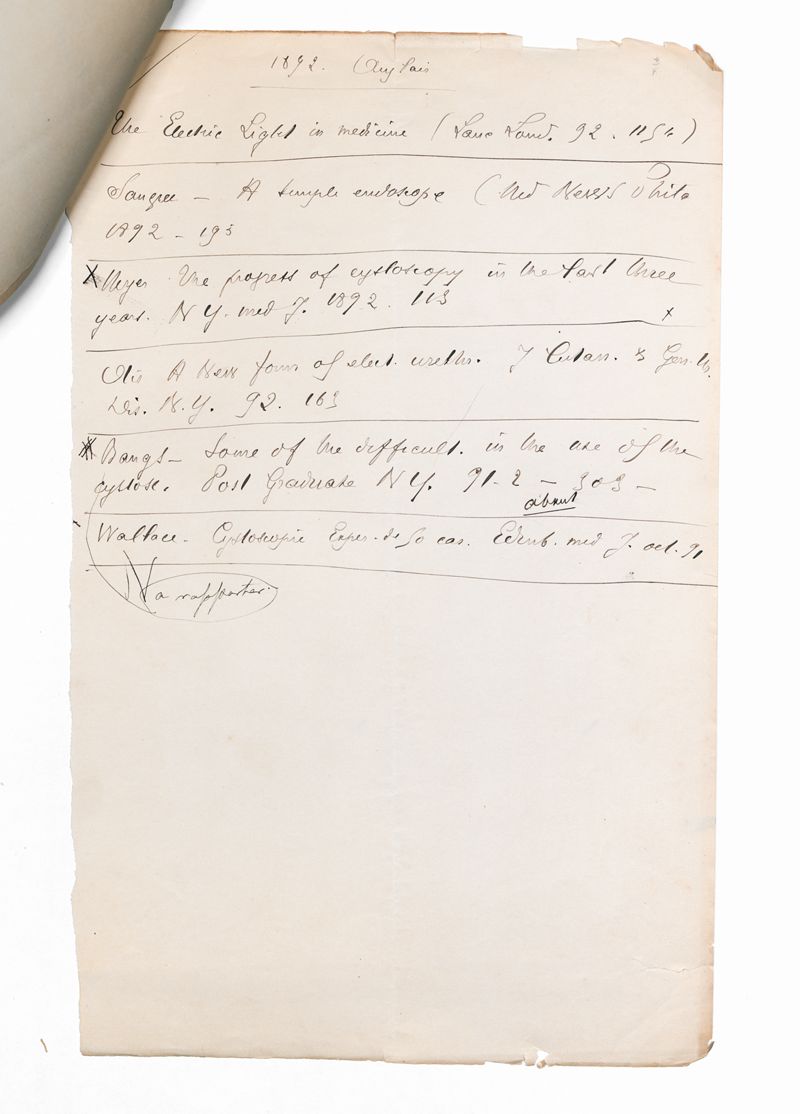 1892. Anglais
The Electric Light in medicine (Lanc Lond. 92. 1154)
Sangree – A simple endoscope (Med News Phila
1892 – 193
X Meyer The progress of cystoscopy in the last three
years. N Y. med J. 1892. 113 x
Otis A New form of elect. ureths. J Cutan. & Gen. Ur.
Dis. N.Y. 92. 163
Bangs – Some of the difficult. in the use of the
cystosc. Post Graduate N Y. 91-2 – 303 –
absent
Wallace – Cystoscopic Exper. de 50 cas. Edinb. med J. oct. 91
a rapporter.